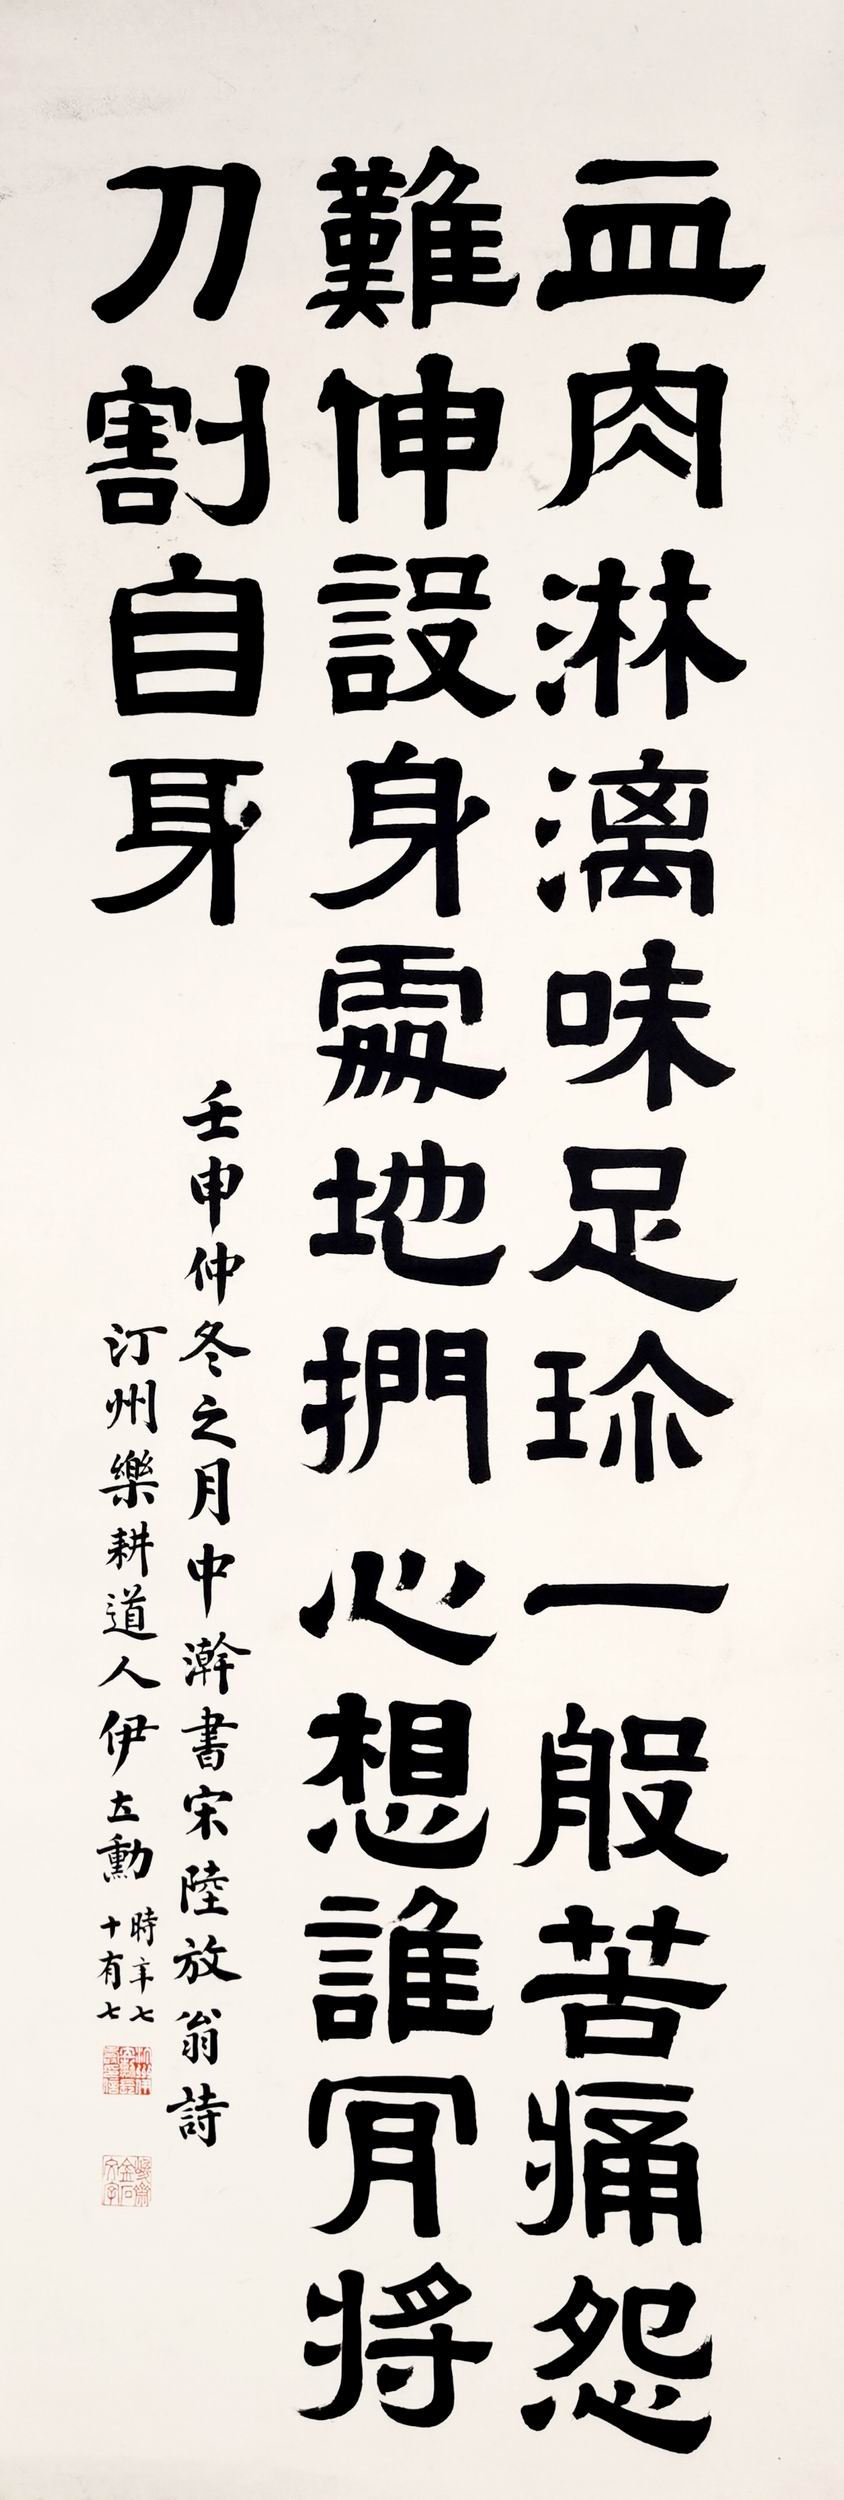 血肉淋漓味足珎一般苦痛怨
難伸設身處地捫心想誰肎將
刀割自身
壬申仲冬之月中澣書宋陸放翁詩
汀州樂耕道人伊立勳
時年七
十有七